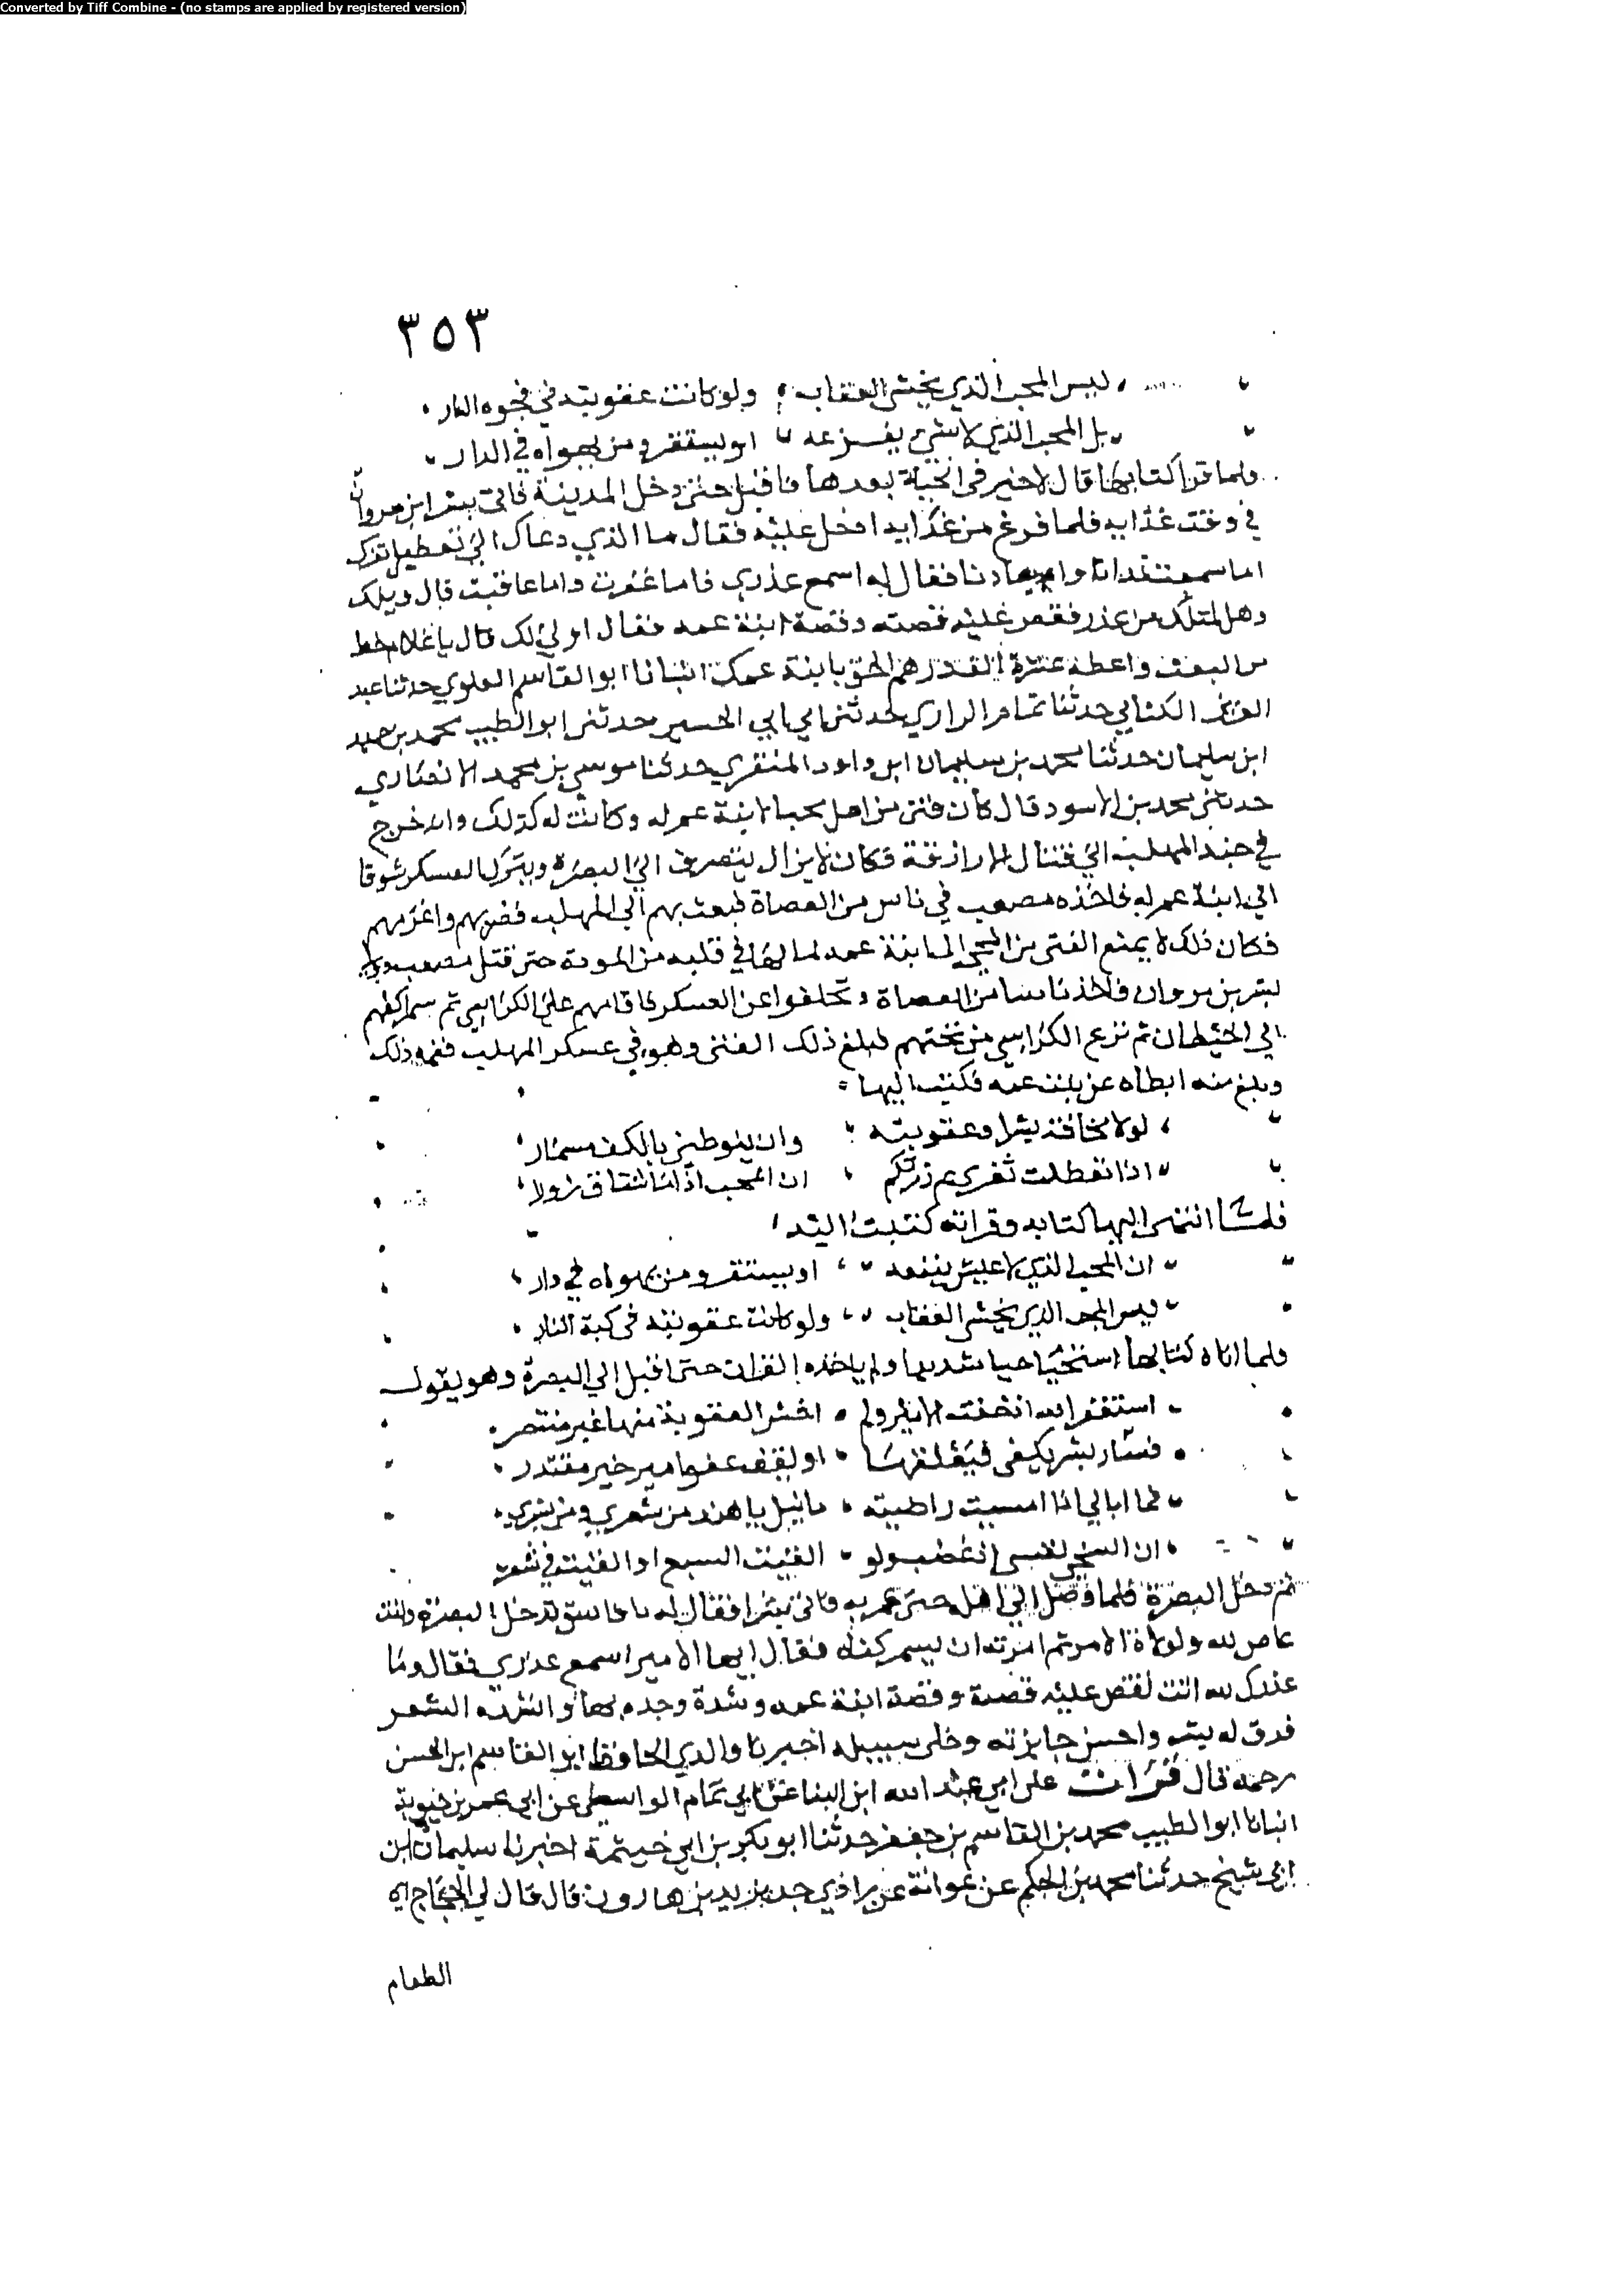 Converted by Tiff Combine - (no stamps are applied by registered version)
٣٥٣
ليس المحب الذي يخشى العقاب ولو كانت عقوبته في فجوه النار
بل المحب الذي لا شيء يفزعه او يستقر ومن يهواه في الدار
فلما قرأ كتابها قال لا خير في الحياة بعدها فاقبل حتى دخل المدينة فاتى بشر ابن مروان
في وقت غذايه فلما فرغ من غذايه ادخل عليه فقال ما الذي دعاك الى تعطيل ثغرك
اما سمعت نداانا وايعادنا فقال له اسمع عذري فاما غفرت واما عاقبت قال ويلك
وهل لمثلك من عذر فقص عليه قصته وقصة ابنة عمه فقال اولى لك قال يا غلام حط
من البعث واعطه عشرة الف درهم الحق بابنة عمك انبانا ابو القاسم العلوي حدثنا عبد
العزيز الكتاني حدثنا تمام الرازي حدثني ابي ابي الحسين حدثني ابو الطيب محمد بن حميد
ابن سليمان حدثنا محمد بن سليمان ابن داود المنقري حدثنا موسى بن محمد الانصاري
حدثني محمد بن الاسود قال كان فتى من اهل يحب ابنة عم له وكانت له كذلك وانه خرج
في جند المهلب الى قتال الازارقة فكان لا يزال ينصرف الى البصرة ويترك العسكر شوقا
الى ابنة عم له فاخذه مصعب في ناس من العصاة فبعث بهم الى المهلب فضربهم واغرمهم
فكان ذلك لا يمنع الفتى من المجي الى ابنة عمه لما لها في قلبه من المودة حتى قتل مصعب
بشر بن مروان فاخذ ناسا من العصاة وتخلفوا عن العسكر فاقامهم على الكراسي ثم سمر اكفهم
الى الحيطان ثم نزع الكراسي من تحتهم فبلغ ذلك الفتى وهو في عسكر المهلب فغمه ذلك
وبلغ منه ابطاه عن بنت عمه فكتب اليها
لولا مخافة بشر وعقوبته وان ينوطني بالكف مسمار
اذا لعطلت ثغري ثم زرتكم ان المحب اذا ما اشتاق زوار
فلما انتهى اليها كتابه وقراته كتبت اليه
ان المحب الذي لا عيش ينفعه او يستقر ومن يهواه في دار
ليس المحب الذي يخشى العقاب ولو كانت عقوبته في كبة النار
فلما اتاه كتابها استحيا حيا شديدا ولم ياخذه القرار حتى اقبل الى البصرة وهو يقول
استغفر الله اذ خفت الامير ولم اخش العقوبة منها غير منتصر
فشار بشر بكفي فيغلفها او ليقف عفوا مير خير مقتدر
فما ابالي اذا امسيت راضية ما نيل يا هند من شعري ومن بشري
ان السخي لنفسي اذ غضب ولو القيت السبع او القيت في
ثم دخل البصرة فلما وصل الى اهله حتى غمز به فاتى بشرا فقال له يا فاسق تدخل البصرة وانت
عاص لله ولولاة الامر ثم امر به ان يسمر كفاه فقال ايها الامير اسمع عذري فقال وما
عندك لله انت فقص عليه قصته وقصة ابنة عمه وشدة وجده بها وانشده الشعر
فرق له بشر واحسن جايزته وخلى سبيله اخبرنا والدي الحافظ ابو القاسم ابن الحسن
رحمه قال قرات على ابي عبد الله ابن البنا عن ابي تمام الواسطي عن ابي عمر بن حيوية
انبانا ابو الطيب محمد بن القاسم بن جعفر حدثنا ابو بكر بن ابي خيثمة اخبرنا سليمان ابن
ابي شيخ حدثنا محمد بن الحكم عن عوانة عن زاذي جد يزيد بن هارون قال قال لي الحجاج اي
الطعام